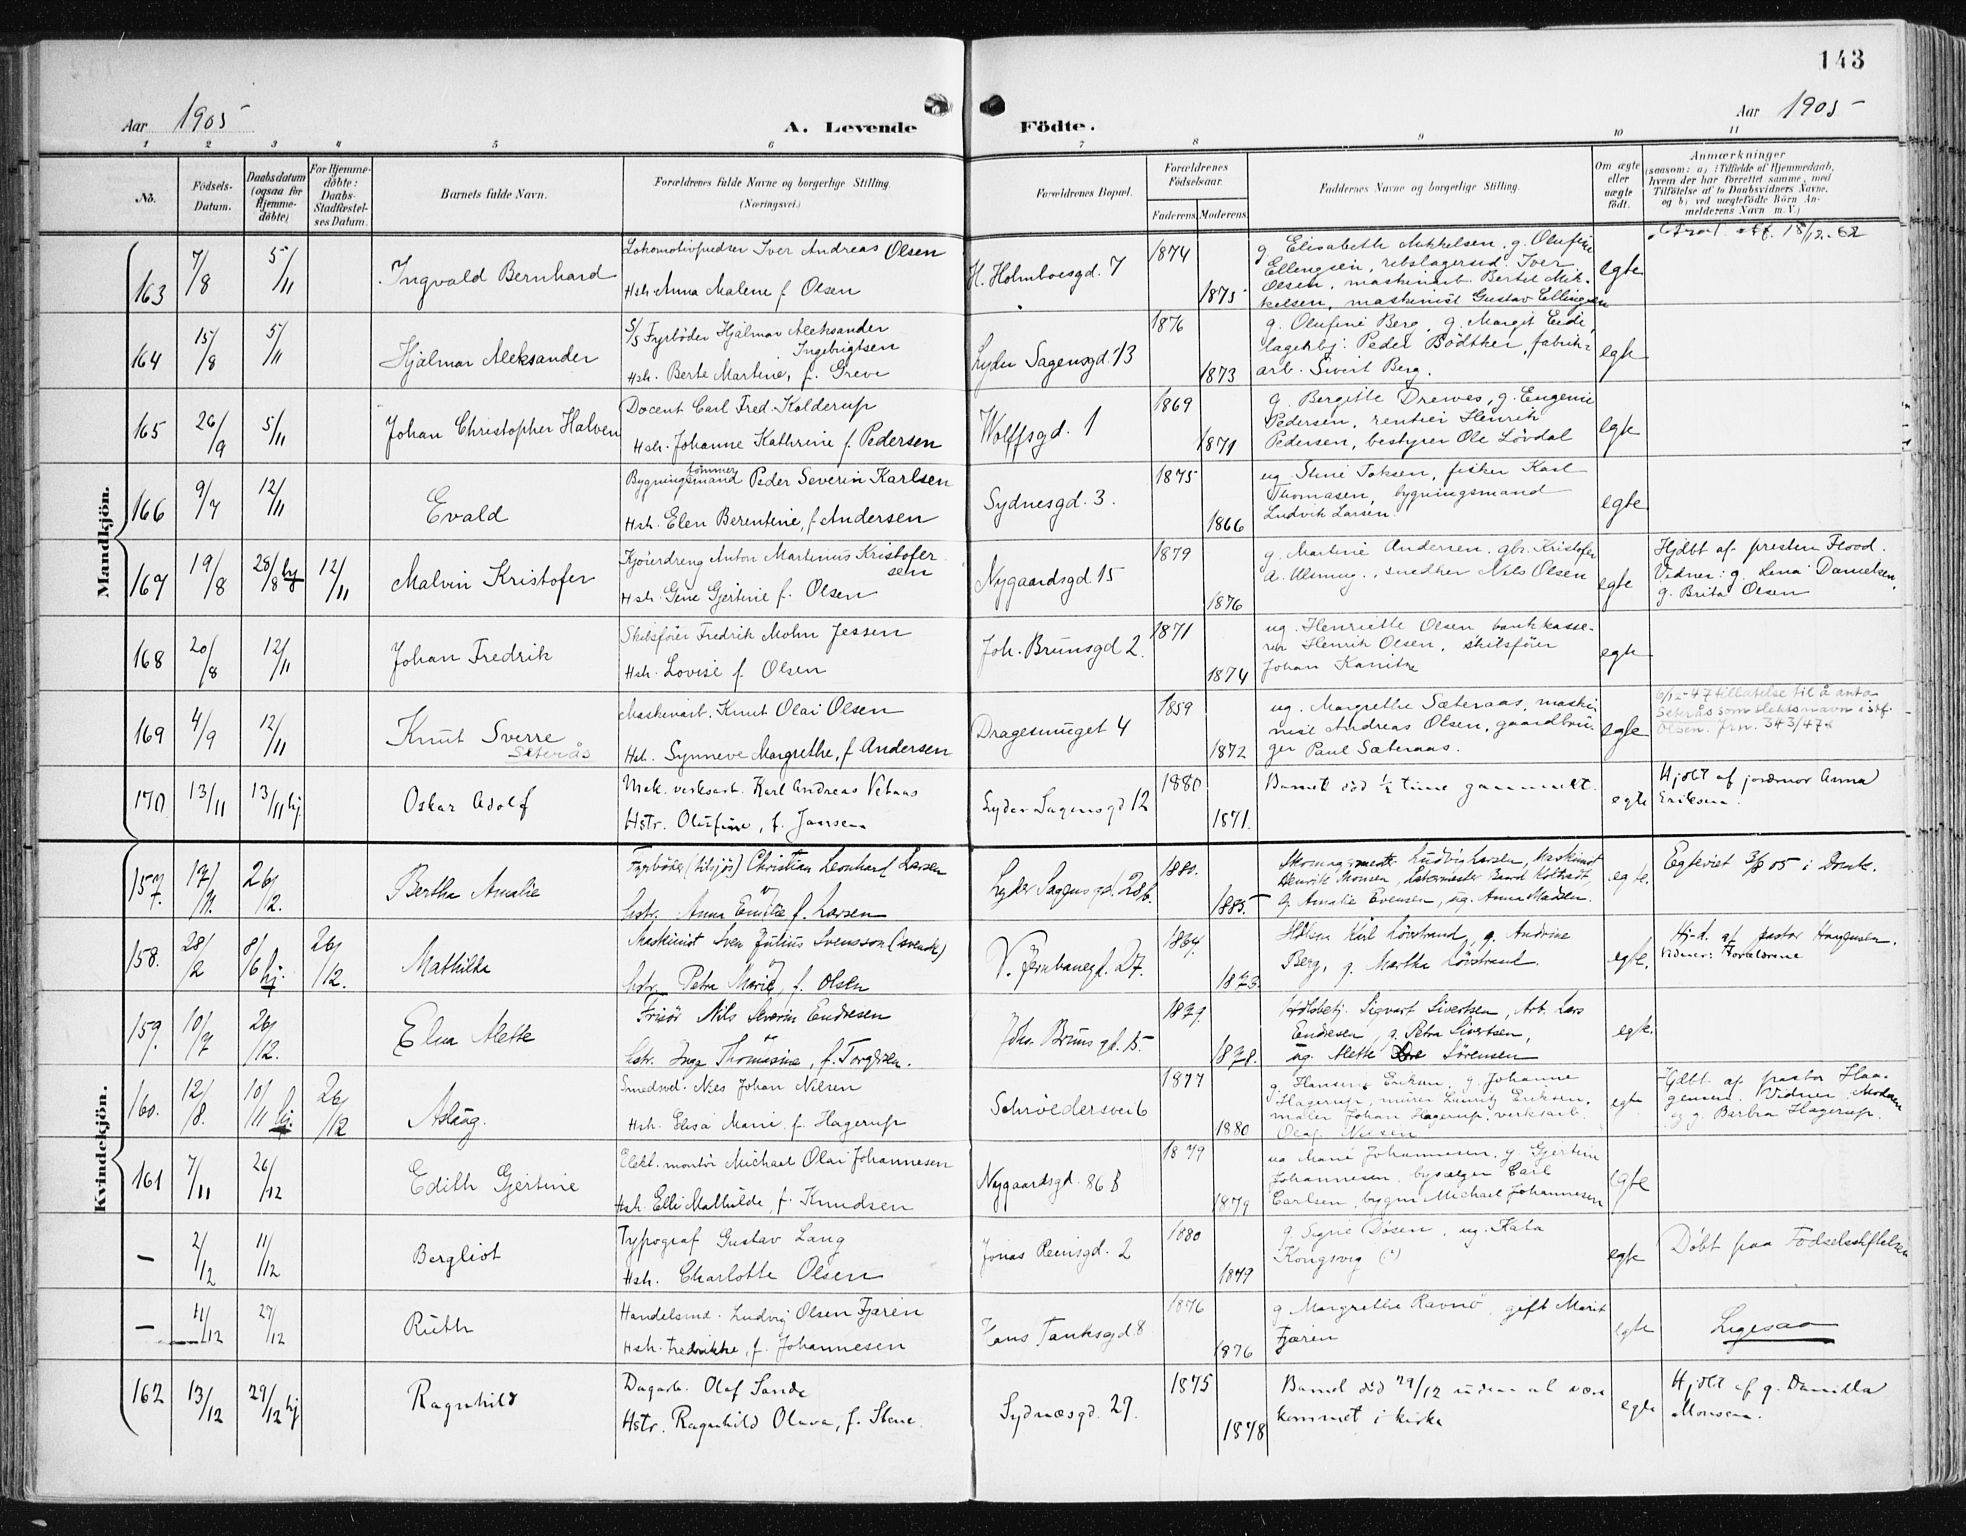 143
Aar 1905
A. Levende
Födte.
Aar 1905
1 2 3 4 5 6 7 8 9 10 11
No.
Födsels-
Datum.
Daabsdatum
(ogsaa for
Hjemme-
döbte)
For Hjemme-
döbte:
Daabs-
Stadfæstel-
ses Datum.
Barnets fulde Navn.
Forældrenes fulde Navne og borgerlige Stilling.
(Næringsvei.)
Forældrenes Bopæl.
Forældrenes
Födselsaar.
Faderens.
Moderens.
Faddernes Navne og borgerlige Stilling.
Om ægte
eller
uægte
födt.
Anmærkninger
(saasom: a) i Tilfælde af Hjemmedaab,
hvem der har forrettet samme, med
Tilföielse af to Daabsvidners Navne,
og b) ved uægtefödte Börn An-
melderens Navn m. V.)
Mandkjön.
163 7/8 5/11 Ingvald Bernhard
Iver Andreas Olsen
Hstr. Anna Malene f. Olsen
H. Holmboesgd. 7
1874
1875
g Elisabeth Mikkelsen, g. Olufine
Ellingsen, rebslagersvd. Iver
Olsen, maskinarb. Bertel Mik-
kelsen, maskinist Gustav Ellingsen
egte
att. 18/12-62
164 15/8 5/11 Hjalmar Aleksander
S/S Fyrböder Hjalmar Aleksander
Ingebrigtsen
Hstr. Berte Martine, f. Greve
Lyder Sagensgd. 13
1876
1873
g. Olufine Berg, g. Margit Eide,
lagerbj. Peder Bödtker, fabrik-
arb. Sivert Berg.
egte
165 26/9 5/11 Johan Christopher Halven
Docent Carl Fred. Kolderup
Hstr. Johanne Kathrine f. Pedersen
Wolffsgd. 1
1869
1871
g. Bergitte Drewes, g. Eugenie
Pedersen, rentier Henrik
Pedersen, bestyrer Ole Lövdal
egte
166 9/7 12/11 Evald
tömmer
Bygningsmand Peder Severin Karlsen
Hstr. Elen Berentine, f. Andersen
Sydnesgd. 3.
1875
1866
ug. Stine Joksen, fisker Karl
Thomasen, bygningsmand
Ludvik Larsen.
egte
167 19/8 28/8 hj 12/11 Malvin Kristofer
Kjöierdreng Anton Martinius Kristofer-
sen
Hstr. Gine Gjertine f. Olsen
Nygaardsgd 15
1879
1876
g. Martine Andersen. gbr. Kristofer
A. , snedker Nils Olsen
egte
Hjdbt af presten Flood.
Vidner: g. Lina Danielsen,
g. Brita Olsen
168 20/8 12/11 Johan Fredrik
Skibsförer Fredrik Mohn Jessen
Hstr. Lovise f. Olsen
Joh. Brunsgd 2.
1871
1874
ug. Henriette Olsen bankkasse-
rer Henrik Olsen, skibsförer
Johan Kanitze
egte
169 4/9 12/11 Knut Sverre
Seterås
Maskinarb. Knut Olai Olsen
Hst. Synneve Margrethe, f Andersen
Dragesmuget 4
1859
1872
ug. Margrethe Sæteraas, maski-
nist Andreas Olsen, gaardbru-
ger Paul Sæteraas.
egte
6/12-47 tillatelse til å anta
Seterås som slektsnavn istf.
Olsen. Jrn. 343/47
170 13/11 13/11 hj. Oskar Adolf
Mek. verksarb. Karl Andreas Vetaas
Hstr. Olufine, f. Janssen
Lyder Sagensgd 12
1880
1871.
Barnet död ½ time gammelt.
egte
Hjdbt af jordmor Anna
Eriksen.
Kvindekjön.
157. 17/11. 26/12. Bertha Amalie
Fyrböder (tilsjös) Christian Leonhard Larsen
hstr. Anna Emilie f. Larsen
Lyder Sagens gd. 28b.
1881.
1885.
Skomagermestr Ludvig Larsen, Maskinist
Henrik Monsen,
g. Amalie Evensen, ug. Anna Madsen.
egte.
Egteviet 3/8 05 i Domk.
158. 28/2 8/6 hj. 26/12. Mathilde
Maskinist Sven Julius Svensson (svensk)
hstr. Petra Marie, f. Olsen
V. Jernbanegd. 27.
1864.
1873.
Karl Lövstrand, g. Andrine
Berg, g. Martha Lövstrand.
egte.
Hj-d. af pastor Haagensen.
Vidner: Forældrene
159. 10/7 26/12. Elna Alette
Frisör Nils Severin Endresen
hstr. Inga Thomasine, f. Torgersen.
Joh. Bruns gd. 15.
1879.
1878.
Sigvart Sivertsen, Arb. Lars
Endresen, g. Petra Sivertsen,
ug. Alette Sörensen
egte.
160. 12/8. 10/11 hj. 26/12 Aslaug.
Smedsvd. Nils Johan Nilsen
Hstr. Elisa Marie f. Hagerup
Schröedersvei 6
1877
1880
g. Hansine Eriksen, g. Johanne
Hagerup, murer Lauritz Eriksen,
maler Johan Hagerup, verksarb.
Olaf Nilsen
egte
Hjdbt af pastor Haa-
gensen. Vidner: Moderen
og g. Bertha Hagerup.
161 7/11 26/12 Edith Gjertine
Elekt. montör Michael Olai Johannesen
Hstr. Elli Mathilde, f. Knudsen
Nygaardsgd. 86 B
1879
1879
ug Marie Johannesen, g Gjertine
Johannesen, bysælger Carl
Carlsen, bygm Michael Johannesen
egte
— 2/12 11/12 Bergliot
Typograf Gustav Lang
Hstr. Charlotte Olsen
Jonas Reinsgd. 2
1880
1879
g. Signe Dösen, ug. Kata
Kongsvig
egte
Döbt paa Födselsstiftelsen
— 11/12 27/12 Ruth
Handelsmd. Ludvig Olsen Fjæren
Hstr. Fredrikke, f. Johannesen
Hans Tanksgd 8
1876
1876
g Margrethe Ravnö, gift Marit
Fjæren
egte
Ligesaa
162 13/12 29/12 hj Ragnhild
Dagarb. Olaf Sande
Hstr. Ragnhild Olava, f. Stene.
Sydnæsgd. 29.
1875
1878
Barnet död 29/12 uden at være
kommet i kirke
egte
Hjdbt af g. Danilla
Monsen.